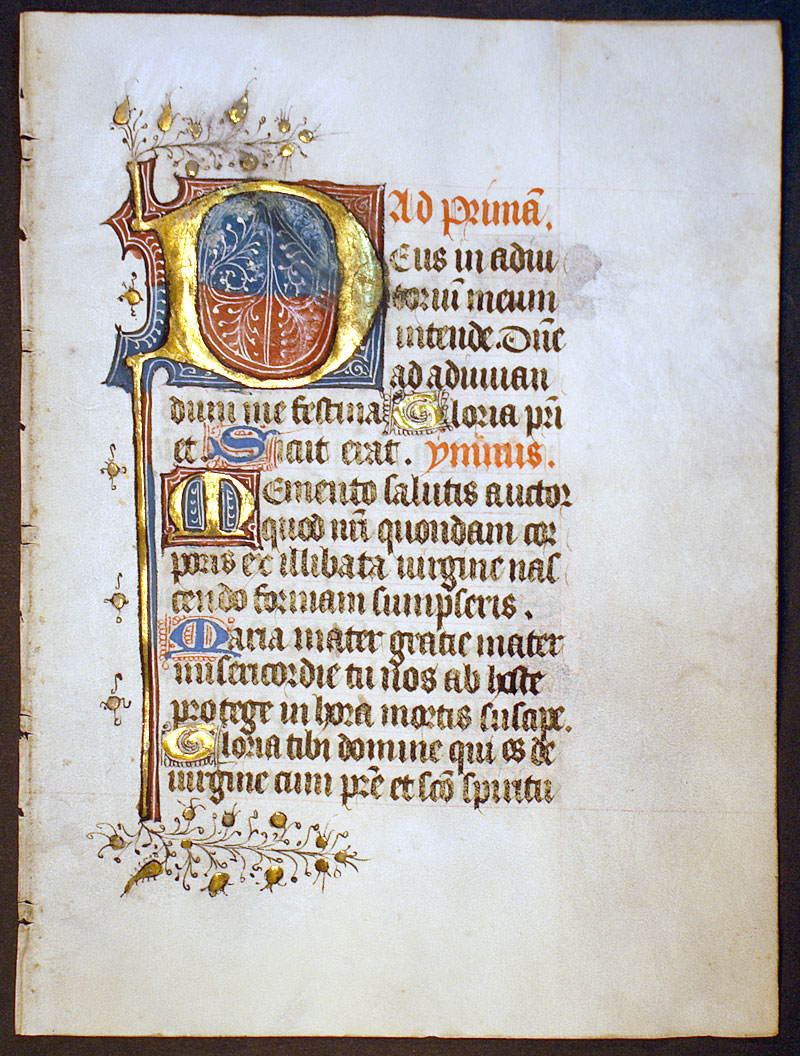 Ad Primā.
Deus in adiu
toriū meum
intende. Dn̄e
ad adiuuan
dum me festina Gloria pr̄i
et. Sicut erat. ymnus.
Memento salutis auctor
quod nr̄i quondam cor
poris ex illibata uirgine nas
cendo formam sumpseris.
Maria mater gratie mater
misericordie tu nos ab hoste
protege in hora mortis suscipe.
Gloria tibi domine qui es de
uirgine cum pr̄e et sc̄o spiritu